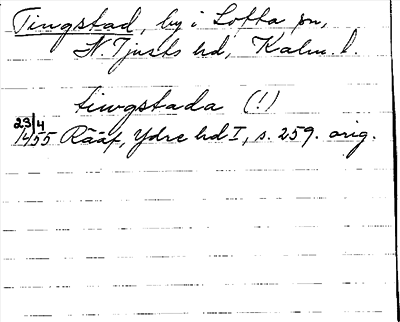 Tingstad, by i Lofta sn,
N. Tjusts hd, Kalm. l.
tingstada (!)
23/4 1455 Rääf, Ydre hd I, s. 259. orig.